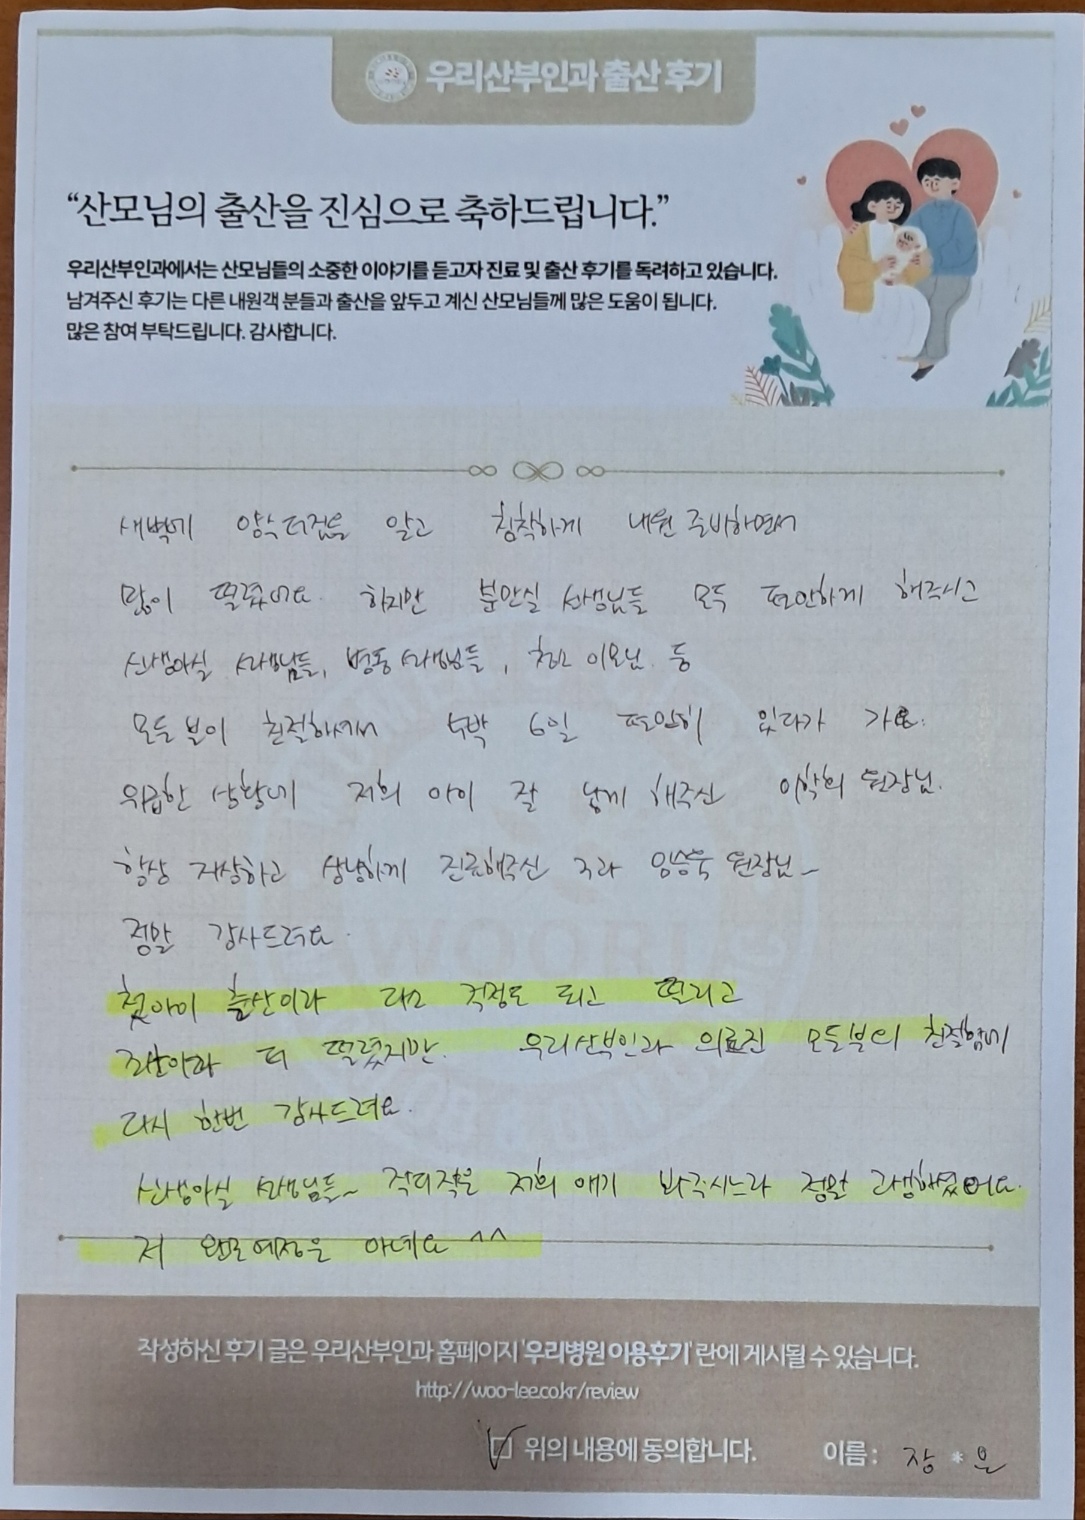 우리산부인과 출산 후기
“산모님의 출산을 진심으로 축하드립니다.”
우리산부인과에서는 산모님들의 소중한 이야기를 듣고자 진료 및 출산 후기를 독려하고 있습니다.
남겨주신 후기는 다른 내원객 분들과 출산을 앞두고 계신 산모님들께 많은 도움이 됩니다.
많은 참여 부탁드립니다. 감사합니다.
새벽에 양수 터짐을 알고 침착하게 내원 준비하면서
많이 떨렸어요. 하지만 분만실 선생님들 모두 편안하게 해주시고
신생아실 선생님들, 병동 선생님들, 청소 이모님 등
모든 분이 친절하셔서 5박 6일 편안히 있다가 가요.
위급한 상황에 저희 아이 잘 낳게 해주신 이학희 원장님.
항상 자상하고 상냥하게 진료해주신 3과 임승욱 원장님~
정말 감사드려요.
첫아이 출산이라 다소 걱정도 되고 떨리고
노산이라 더 떨렸지만. 우리산부인과 의료진 모든분의 친절함에
다시 한번 감사드려요.
신생아실 선생님들~ 작디작은 저희 애기 봐주시느라 정말 고생하셨어요.
저 완모예정은 아녜요 ^^
작성하신 후기 글은 우리산부인과 홈페이지 '우리병원 이용후기' 란에 게시될 수 있습니다.
http://woo-lee.co.kr/review
위의 내용에 동의합니다. 이름 : 장 * 은